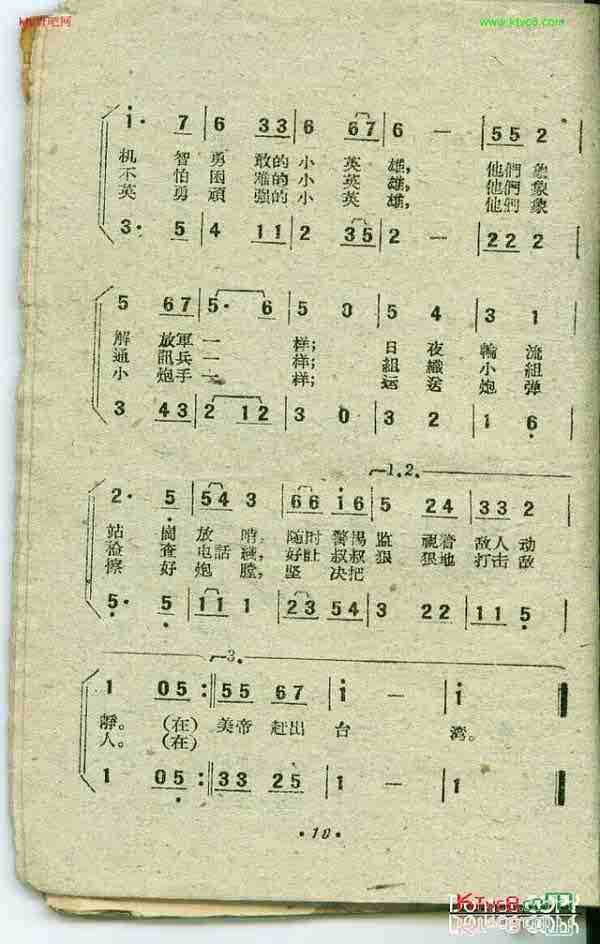 www.ktvc8.com
1· 7 | 6 33 | 6 67 | 6 — | 55 2
机 智 勇 敢的 小 英 雄, 他們 象
不 怕 困 难的 小 英 雄, 他們 象
英 勇 頑 强的 小 英 雄, 他們 象
3· 5 | 4 11 | 2 35 | 2 — | 22 2
5 67 | 5· 6 | 5 0 | 5 4 | 3 1
解 放軍 一 样; 日 夜 輪 流
通 訊兵 一 样; 組 織 小 組
小 炮手 一 样; 运 送 炮 弹
3 43 | 2 12 | 3 0 | 3 2 | 1 6
1.2.
2· 5 | 54 3 | 66 i6 | 5 24 | 33 2
站 崗 放 哨, 随时 警惕 监 視着 敌人 动
查 电話 綫, 好让 叔叔 狠 狠地 打击 敌
擦 好 炮 膛, 坚 决把
5· 5 | 11 1 | 23 54 | 3 22 | 11 5
3.
1 05 :|| 55 67 | i — | i ||
靜。 (在) 美帝 赶出 台 湾。
人。 (在)
1 05 :|| 33 25 | 1 — | 1 ||
·10·